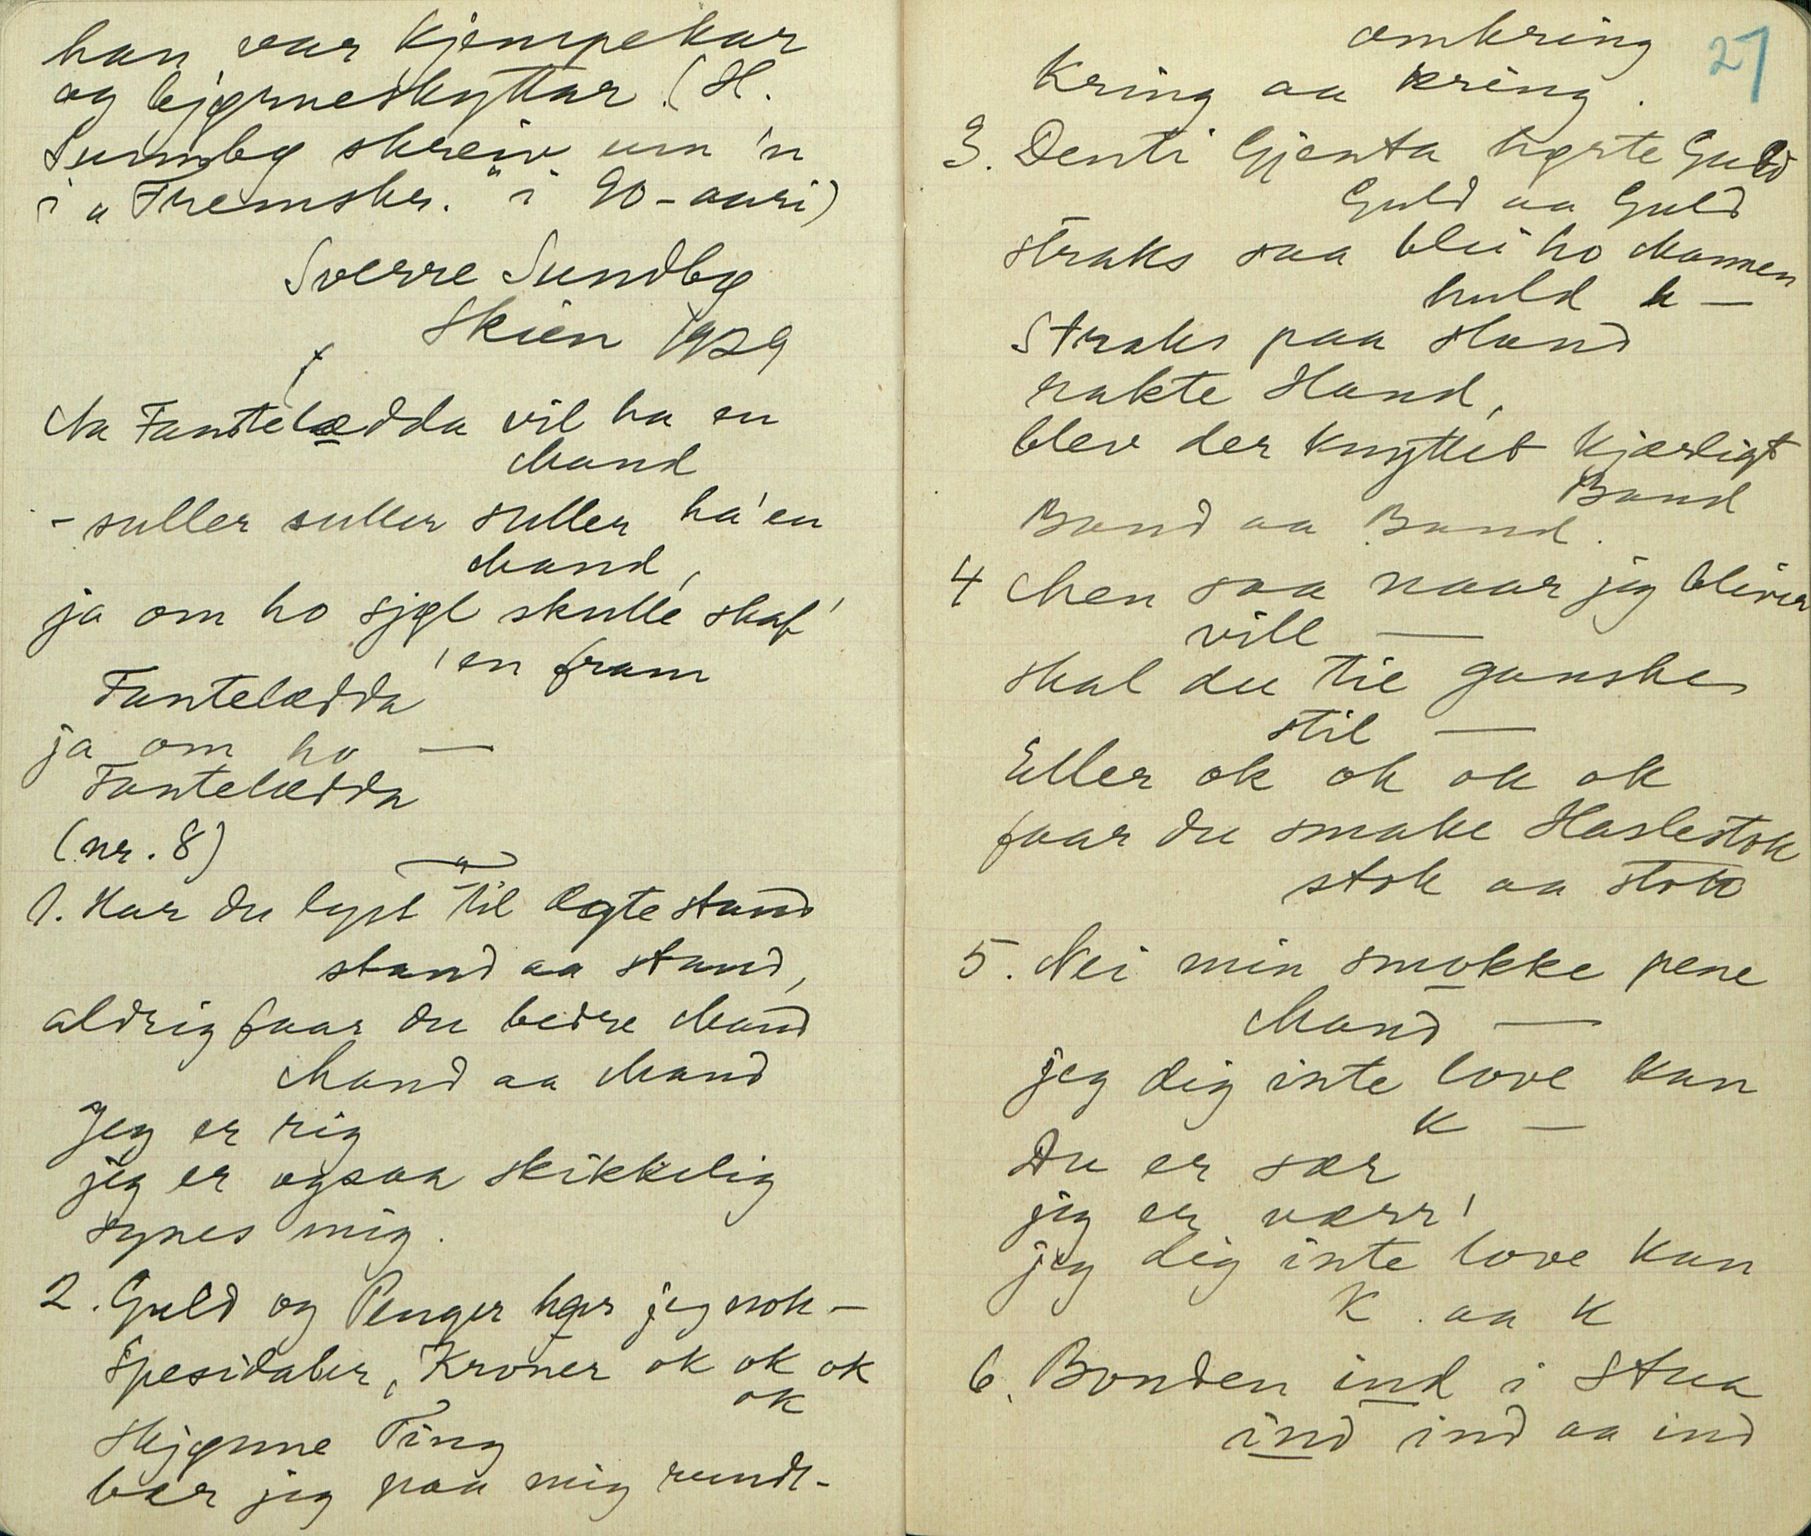 han var kjempekar
og bjørneskyttar. (H.
Sundby skreiv um 'n
i "Fremskr." i 90-aari)
Sverre Sundby
Skien 1929
Aa Fantelædda vil ha en
Mand
- suller suller suller ha' en
Mand,
ja om ho sjøl skulle skaf'
'en fram
Fantelædda
ja om ho —
Fantelædda
(nr. 8)
1. Har du lyst til Ægtestand
stand aa stand,
aldrig faar du bedre Mand
Mand aa Mand
Jeg er rig
jeg er ogsaa skikkelig
synes mig.
2. Guld og Penger har jeg nok —
Spesidaler, Kroner ok ok ok
ok
Skjønne Ting
bær jeg paa mig rundt-
27
omkring
Kring aa kring.
3. Denti Gjenta hørte Guld
Guld aa Guld
straks saa blei ho Mannen
huld h —
Straks paa Stand
rakte Haand,
blev der knyttet kjærligt
Baand
Baand aa Baand.
4 Men saa naar jeg bliver
vill —
skal du tie ganske
stil —
Eller ok ok ok ok
faar du smake Haslestok
stok aa stok
5. Nei min smokke pene
Mand —
jeg dig inte love kan
K —
Du er sær
jeg er værr'
jeg dig inte love kan
K. aa K
6. Bonden ind i Stua
ind ind aa ind